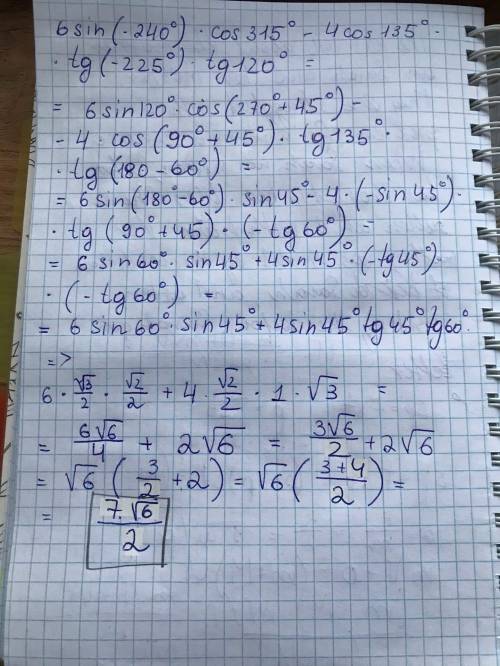 6 sin (-240°) · cos 315° - 4 cos 135° ·
· tg (-225°) · tg 120° =
= 6 sin 120° · cos (270° + 45°) -
- 4 · cos (90° + 45°) · tg 135° ·
· tg (180 - 60°) =
= 6 sin (180° - 60°) · sin 45° - 4 · (- sin 45°) ·
· tg (90° + 45) · (- tg 60°) =
= 6 sin 60° · sin 45° + 4 sin 45° · (- tg 45°) ·
· (- tg 60°) =
= 6 sin 60° · sin 45° + 4 sin 45° tg 45° tg 60°.
=>
6 · √3/2 · √2/2 + 4 · √2/2 · 1 · √3 =
= 6√6/4 + 2√6 = 3√6/2 + 2√6
= √6 (3/2 + 2) = √6 (3+4/2) =
= 7·√6/2